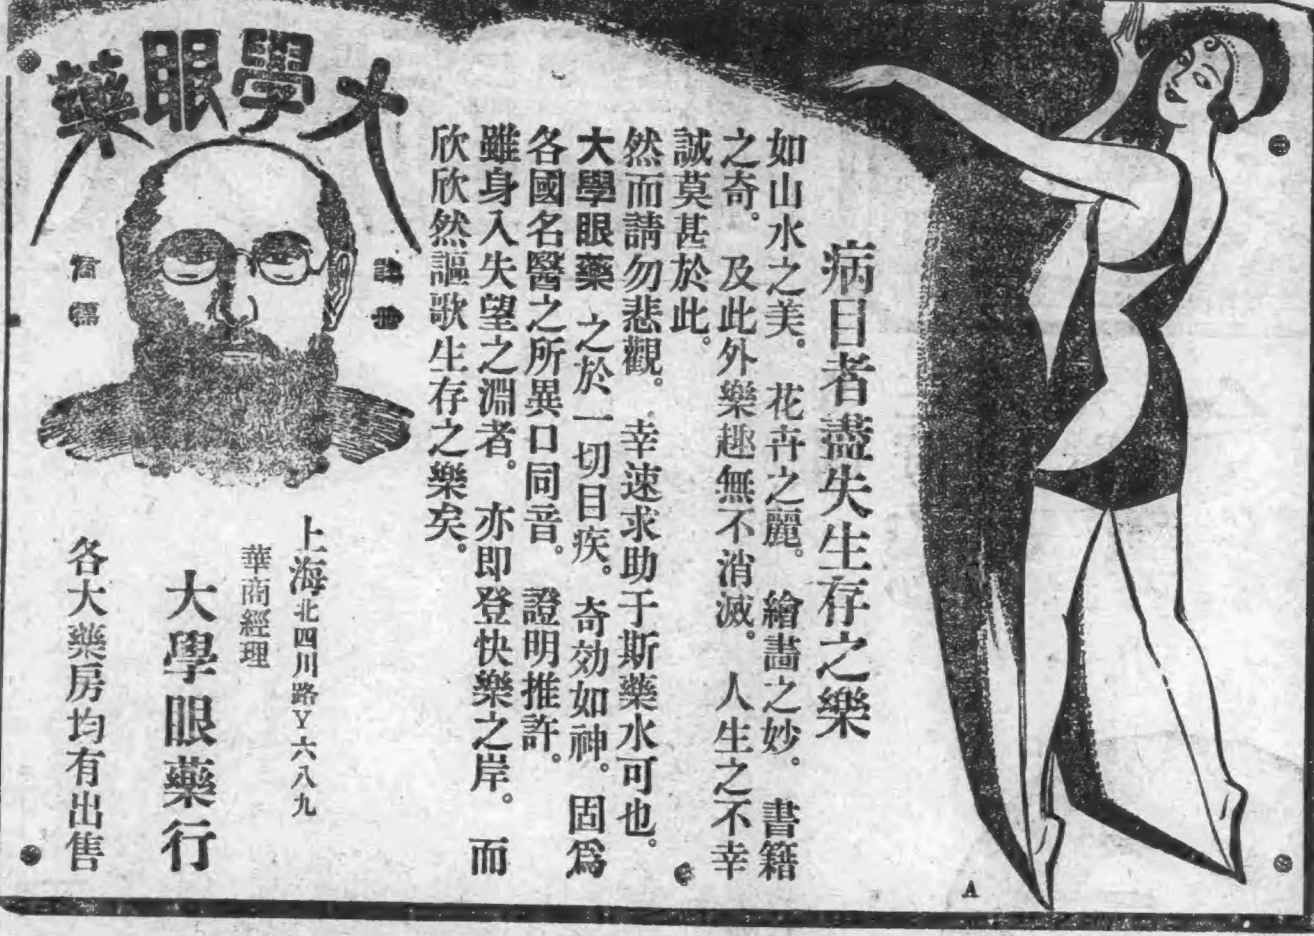 大學眼藥
註冊
商標
病目者盡失生存之樂
如山水之美。花卉之麗。繪畵之妙。書籍
之奇。及此外樂趣無不消滅。人生之不幸
誠莫甚於此。
然而請勿悲觀。幸速求助于斯藥水可也。
大學眼藥之於一切目疾。奇効如神。固爲
各國名醫之所異口同音。證明推許。
雖身入失望之淵者。亦即登快樂之岸。而
欣欣然謳歌生存之樂矣。
上海北四川路Y六八九
華商經理
大學眼藥行
各大藥房均有出售
A